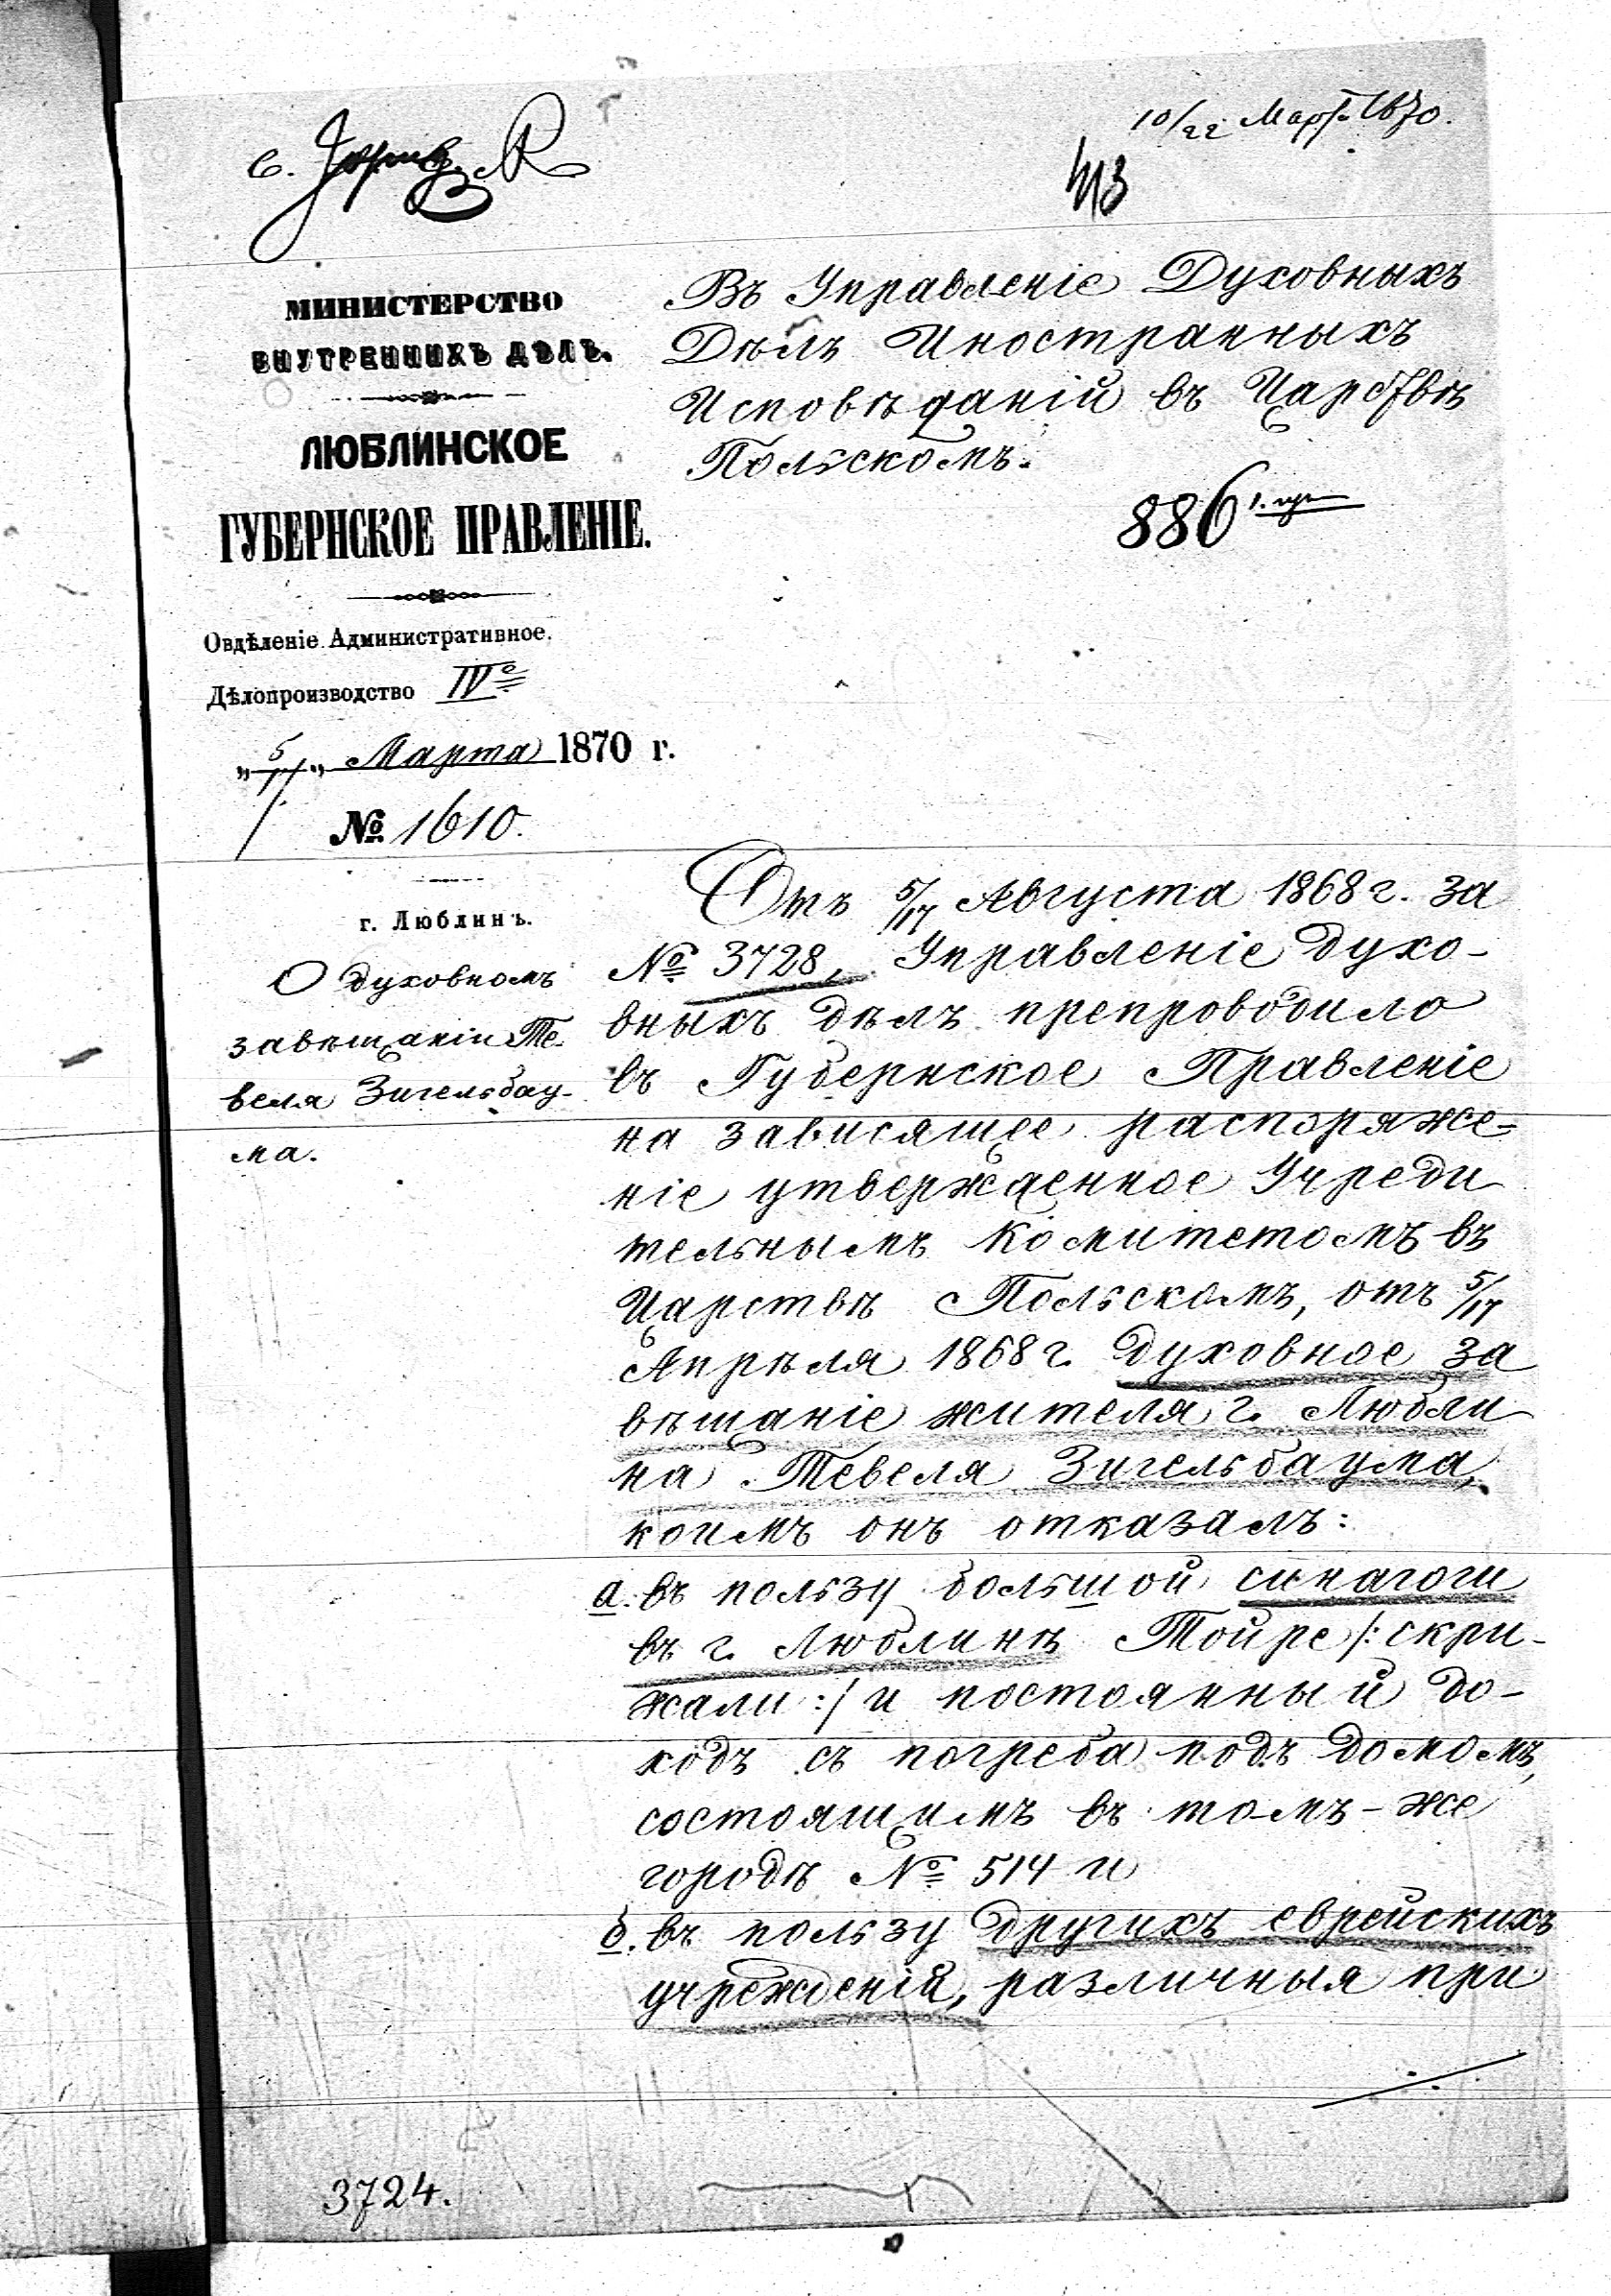 10/22 Март. 1870.
413
МИНИСТЕРСТВО
ВНУТРЕННИХЪ ДѢЛЪ.
ЛЮБЛИНСКОЕ
ГУБЕРНСКОЕ ПРАВЛЕНІЕ.
Овдѣленіе Административное.
Дѣлопроизводство IVº
„5/17„ Марта 1870 г.
№ 1610.
г. Люблинъ.
О духовномъ
завѣщаніи Те-
веля Зигельбау-
ма.
Въ Управленіе Духовныхъ
Дѣлъ Иностранныхъ
Исповѣданій въ Царствѣ
Польскомъ.
886
Отъ 5/17 Августа 1868 г. за
№ 3728, Управленіе духо-
вныхъ дѣлъ препроводило
въ Губернское Правленіе
на зависящее распоряже-
ніе утвержденное Учреди
тельнымъ Комитетомъ въ
Царствѣ Польскомъ, отъ 5/17
Апрѣля 1868 г. духовное за
вѣщаніе жителя г. Любли
на Тевеля Зигельбаума,
коимъ онъ отказалъ:
а. въ пользу большой синагоги
въ г. Люблинѣ Тойре /: скри-
жали :/ и постоянный до-
ходъ съ погреба подъ домомъ,
состоящимъ въ томъ-же
городѣ № 514 и
б. въ пользу другихъ еврейскихъ
учрежденій, различныя при
3724.